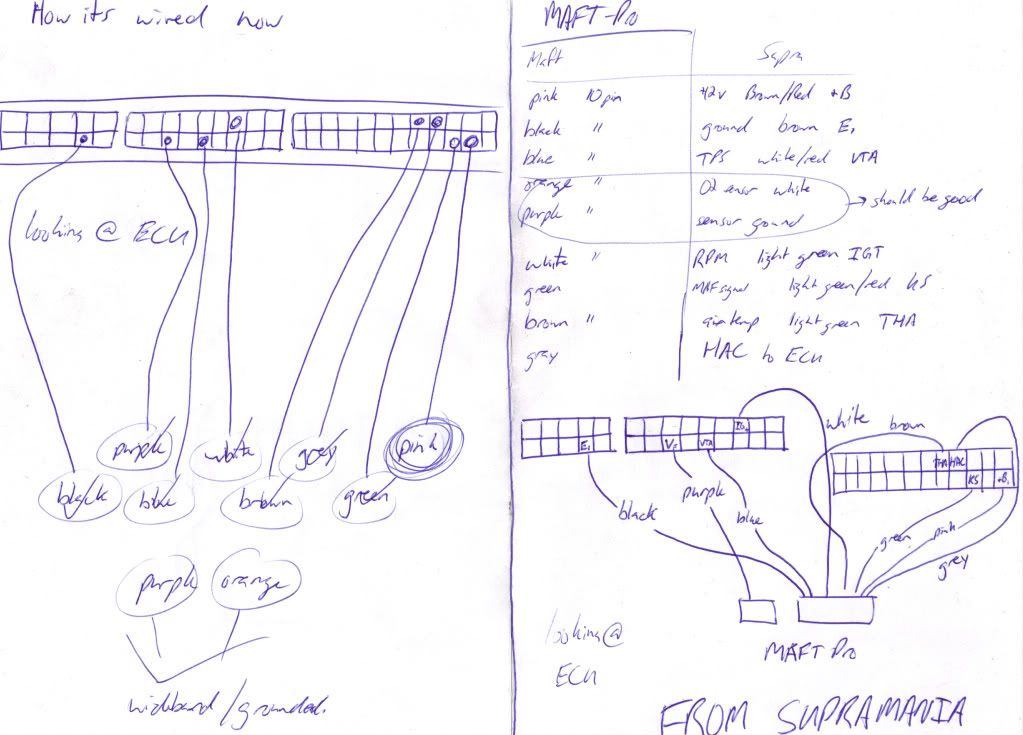 How its wired now
looking @ ECU
purple white grey pink
black blue brown green
purple orange
wideband/grounded.
MAFT-Pro
Maft Supra
pink 10pin +12v Brown/Red +B
black " ground brown E1
blue " TPS white/red VTA
orange " O2 sensor white
purple " sensor ground
→ should be good
white " RPM light green IGT
green MAF signal light green/red KS
brown " air temp light green THA
gray HAC to ECU
E1 VTA THA HAC
KS +B1
white brown
black purple blue
green pink grey
looking @
ECU
MAFT Pro
FROM SUPRAMANIA